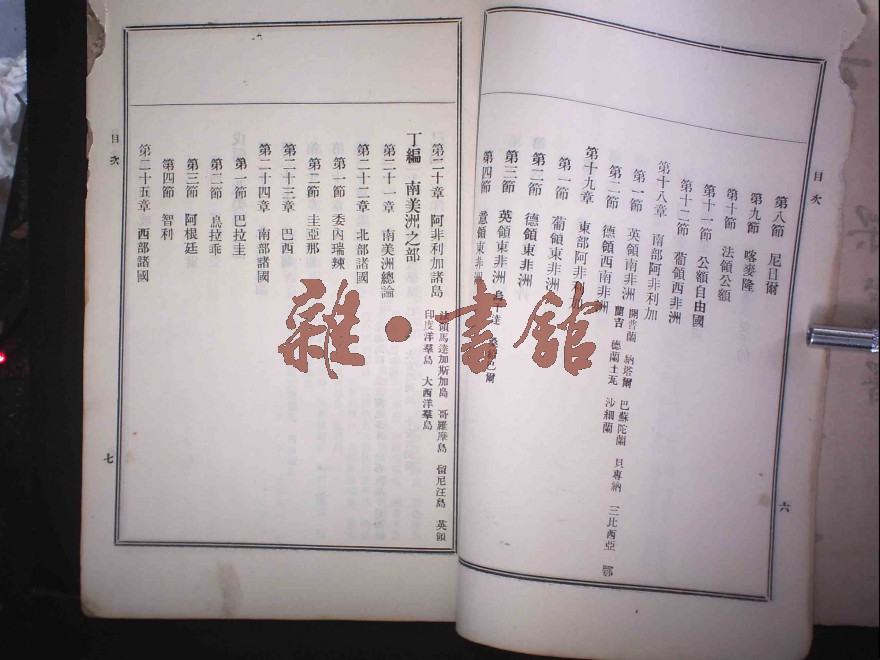 目次
第八節 尼日爾
第九節 喀麥隆
第十節 法領公額
第十一節 公額自由國
第十二節 葡領西非洲
第十八章 南部阿非利加
第一節 英領南非洲 開普蘭 納塔爾 巴蘇陀蘭 貝專納 三比西亞
蘭吉 德蘭士瓦 沙細蘭
第二節 德領西南非洲
第十九章 東部阿非利加
第一節 葡領東非洲
第二節 德領東非洲
第三節 英領東非洲
第四節 意領東非洲
六
第二十章 阿非利加諸島 法領馬達加斯加島 哥羅摩島 留尼汪島 英領
印度洋羣島 大西洋羣島
丁編 南美洲之部
第二十一章 南美洲總論
第二十二章 北部諸國
第一節 委內瑞辣
第二節 圭亞那
第二十三章 巴西
第二十四章 南部諸國
第一節 巴拉圭
第二節 烏拉乖
第三節 阿根廷
第四節 智利
第二十五章 西部諸國
目次
七
雜·書館